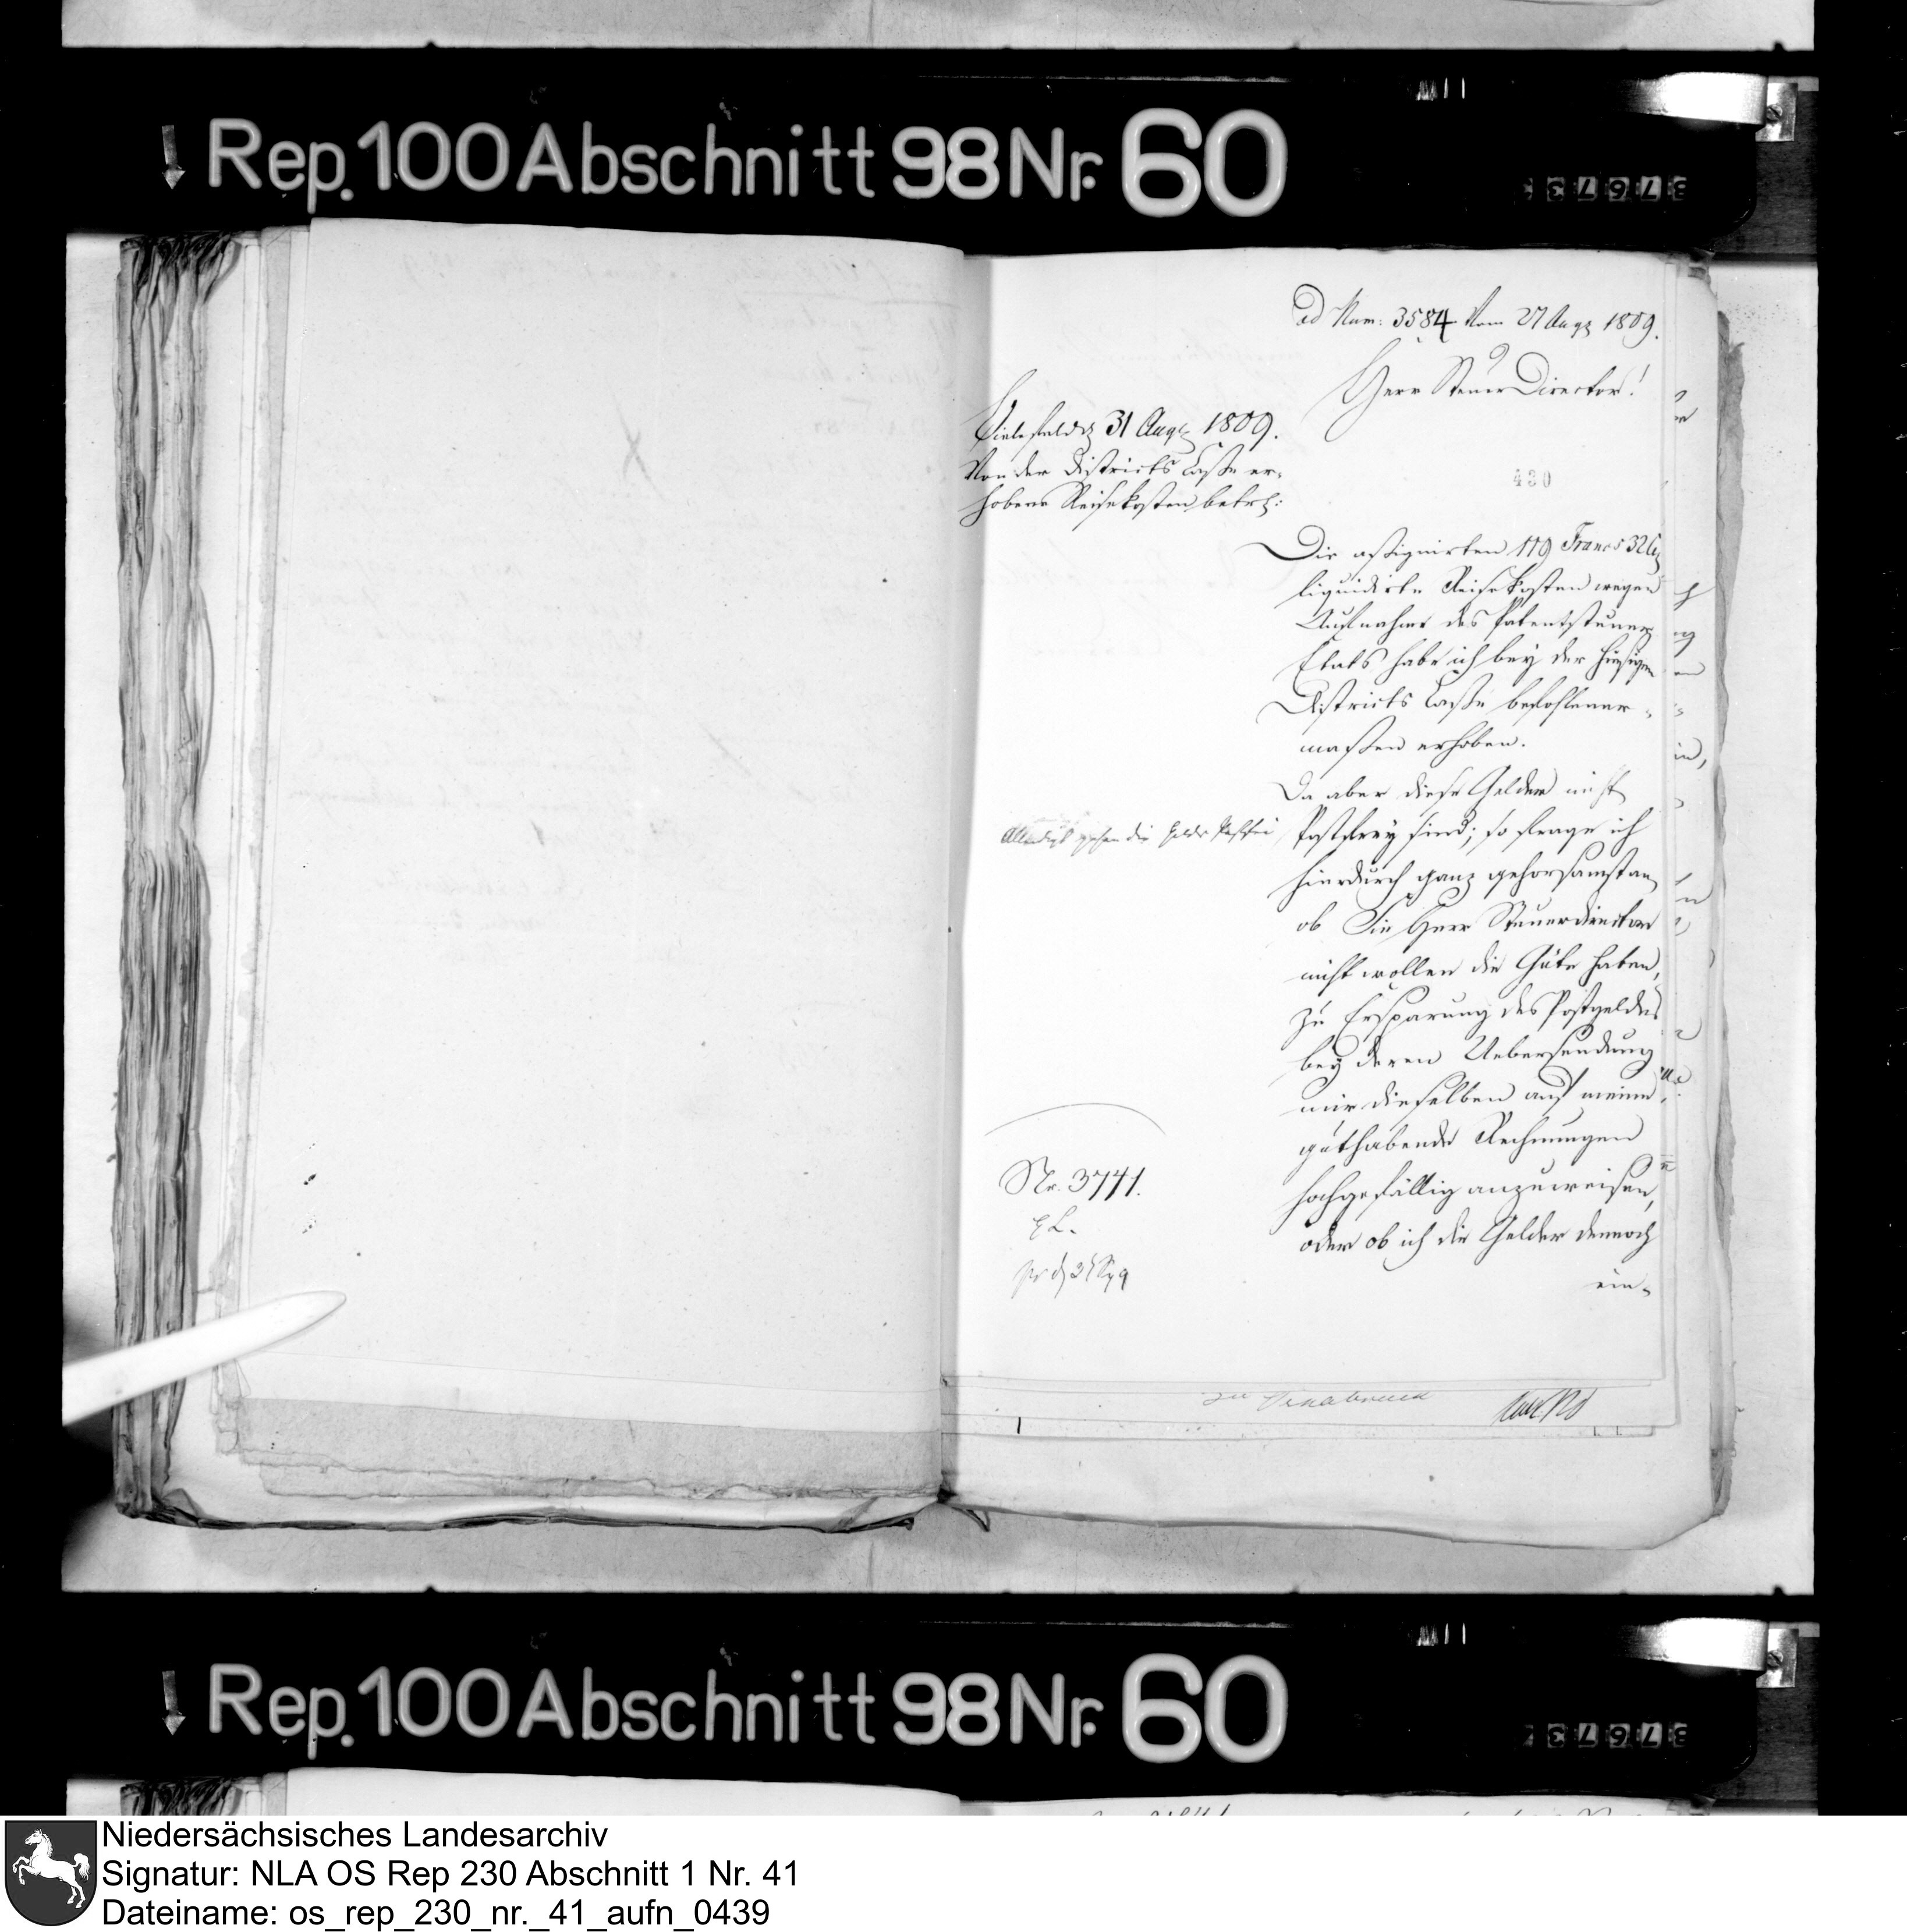 Rep. 100 Abschnitt 98 Nr. 60
37673
ad Num: 3584 vom 27 Aug 1809.
Herr Steuer Director!
Bielefeld d 31 Aug 1809.
Von der Districts Casse er-
hobene Reisekosten betrf:
430
Die assignirten 119 Francs 32 C
liquidirte Reisekosten wegen
Aufnahme des Patentsteuer
Etats habe ich bey der hiesigen
Districts Casse befohlener-
maßen erhoben.
Da aber diese Gelder nicht
Postfrey sind; so frage ich
hierdurch ganz gehorsamst an
ob Sie Herr Steuerdirector
nicht wollen die Güte haben,
zu Ersparung des Postgeldes
bey deren Uebersendung
mir dieselben auf meine
guthabende Rechnungen
hochgefällig anzuweisen,
oder ob ich die Gelder dennoch
ein-
gehen die Gelder
Nr. 3741.
zu Osnabrück
Rep. 100 Abschnitt 98 Nr. 60
37673
Niedersächsisches Landesarchiv
Signatur: NLA OS Rep 230 Abschnitt 1 Nr. 41
Dateiname: os_rep_230_nr._41_aufn_0439